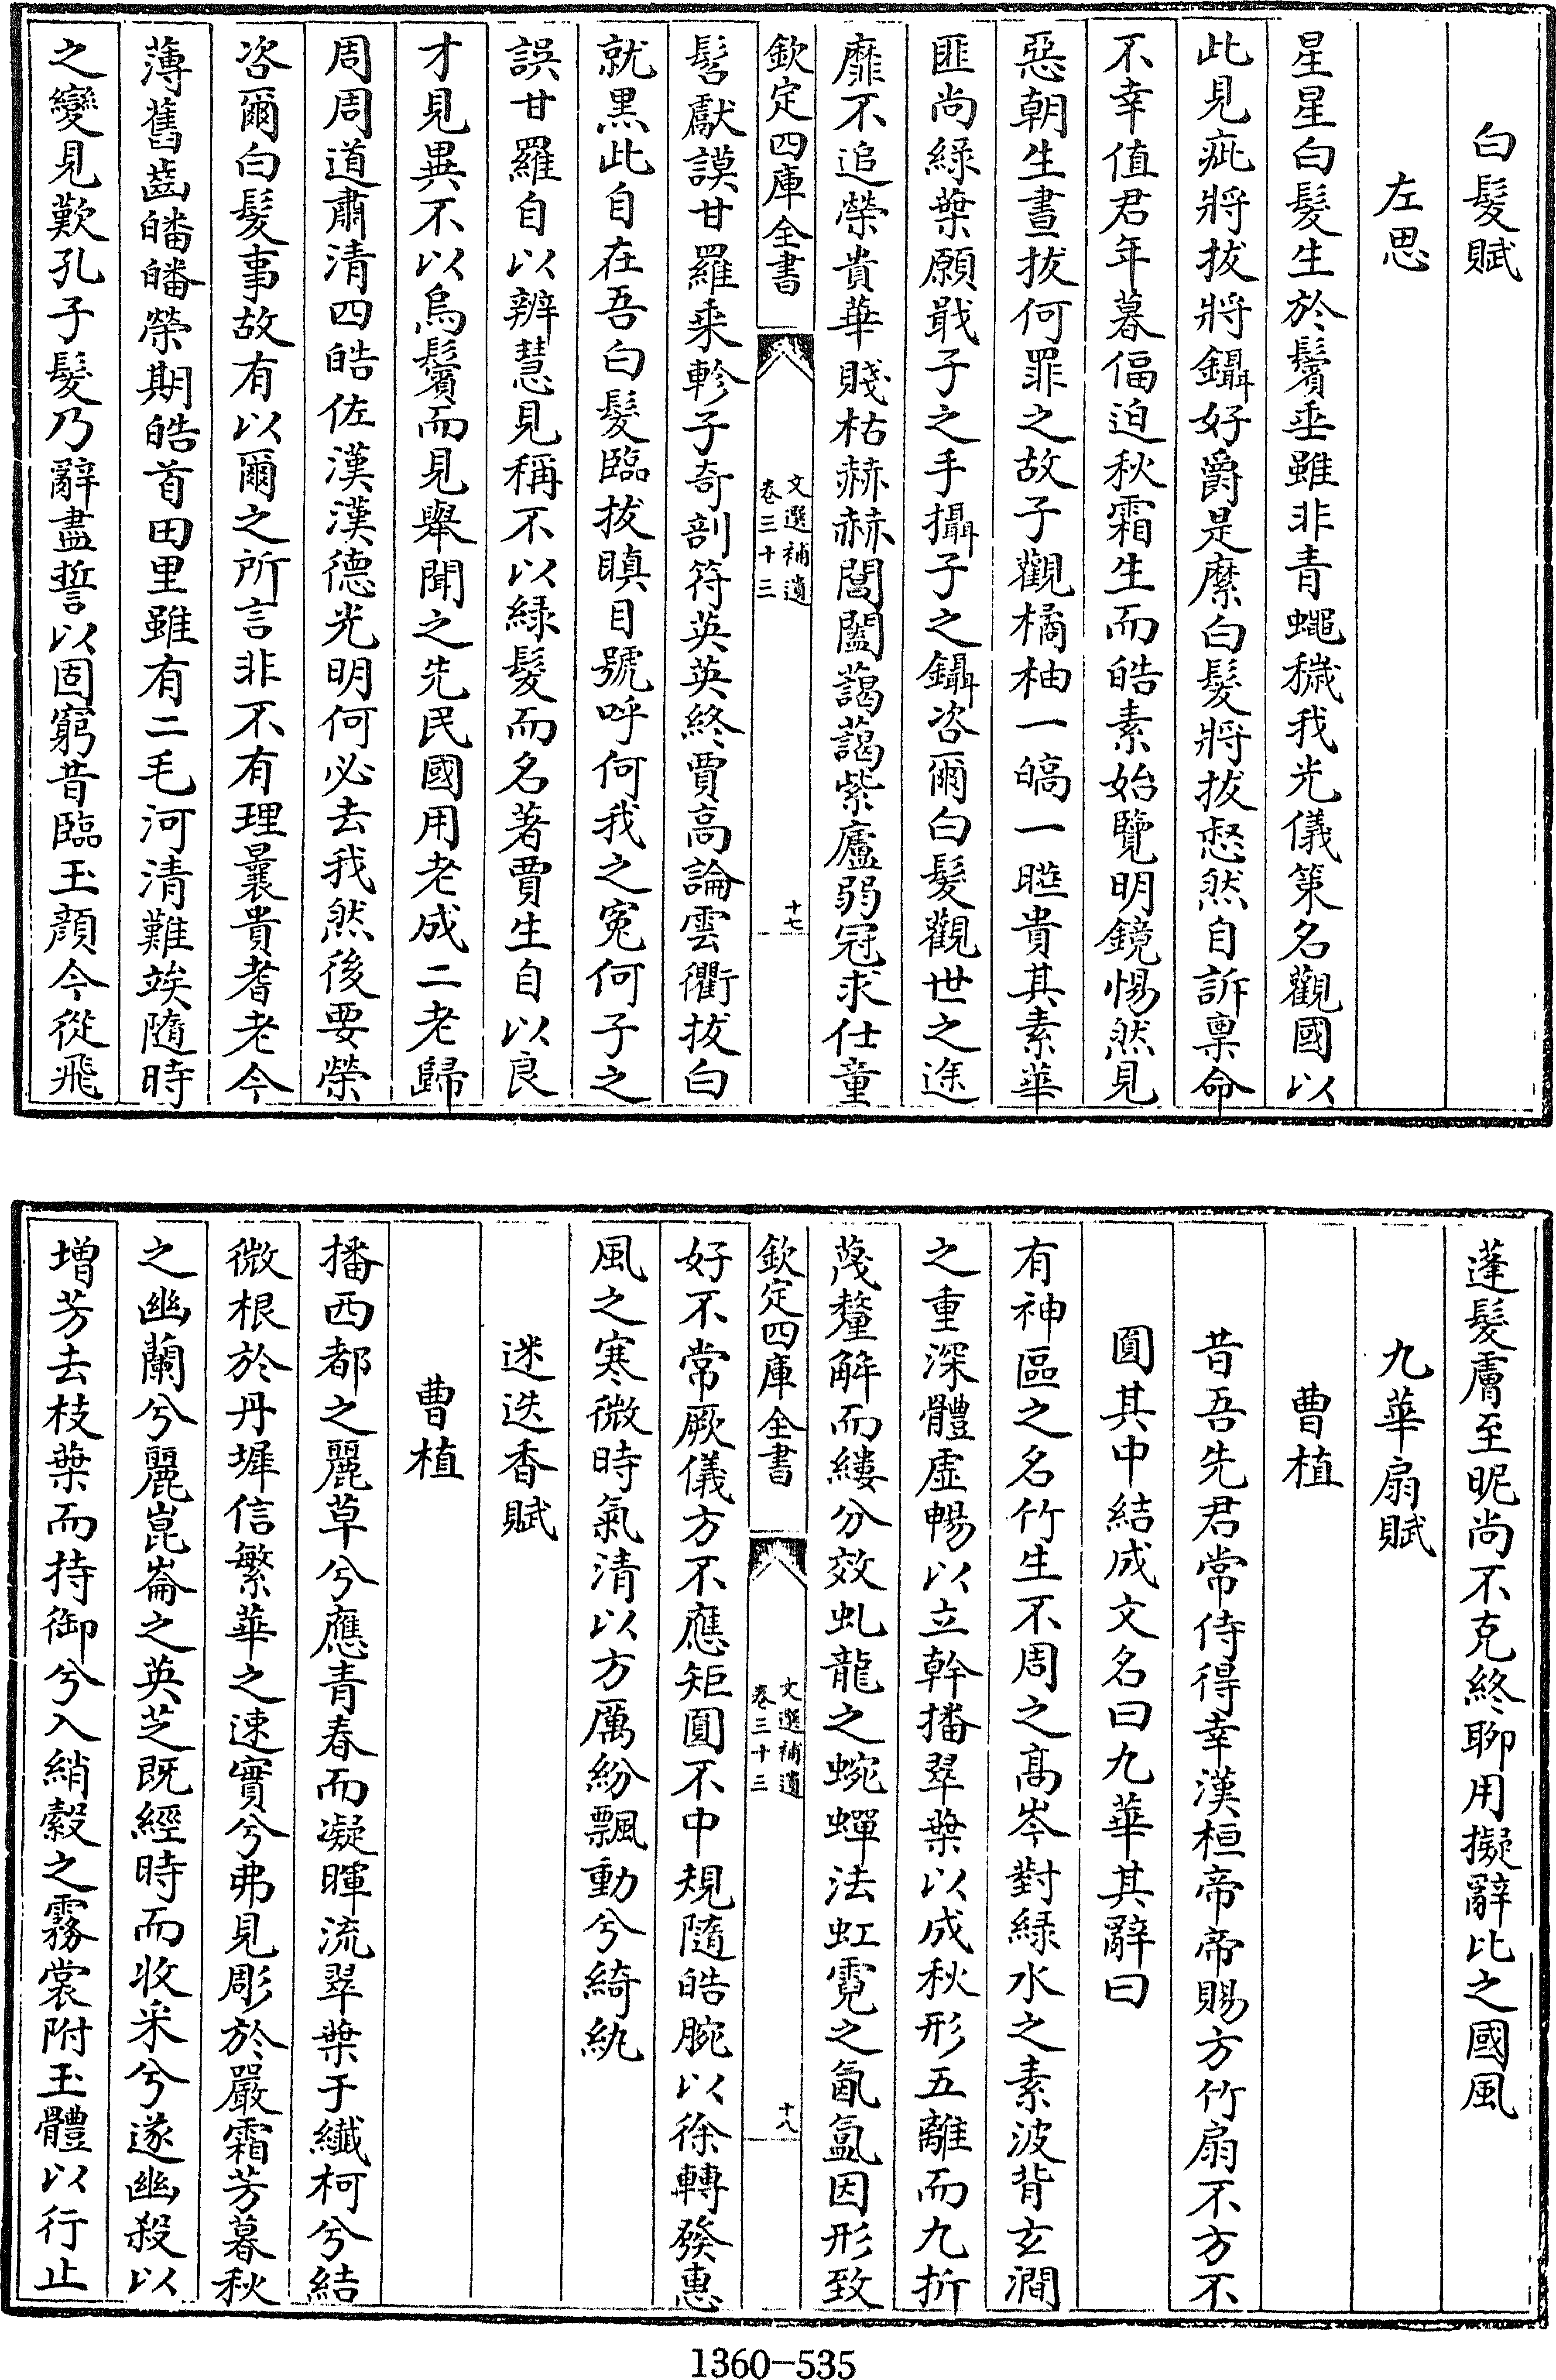 白髮賦
左思
星星白髮生於鬢垂雖非青蠅穢我光儀策名觀國以
此見疵將拔將鑷好爵是縻白髮將拔惄然自訴稟命
不幸值君年暮偪迫秋霜生而皓素始覽明鏡惕然見
惡朝生晝拔何罪之故子觀橘柚一暠一曄貴其素華
匪尚綠葉願戢子之手攝子之鑷咨爾白髮觀世之途
靡不追榮貴華賤枯赫赫閶闔藹藹紫廬弱冠求仕童
欽定四庫全書
文選補遺
卷三十三
十七
髫獻謨甘羅乘軫子奇剖符英英終賈高論雲衢拔白
就黑此自在吾白髮臨拔瞋目號呼何我之寃何子之
誤甘羅自以辨慧見稱不以綠髮而名著賈生自以良
才見異不以烏鬢而見舉聞之先民國用老成二老歸
周周道肅清四皓佐漢漢德光明何必去我然後要榮
咨爾白髮事故有以爾之所言非不有理曩貴耆老今
薄舊齒皤皤榮期皓首田里雖有二毛河清難竢隨時
之變見歎孔子髮乃辭盡誓以固窮昔臨玉顔今從飛
蓬髮膚至昵尚不克終聊用擬辭比之國風
九華扇賦
曹植
昔吾先君常侍得幸漢桓帝帝賜方竹扇不方不
圓其中結成文名曰九華其辭曰
有神區之名竹生不周之高岑對綠水之素波背玄澗
之重深體虛暢以立幹播翠葉以成秋形五離而九折
蔑氂解而縷分效虬龍之蜿蟬法虹霓之氤氳因形致
欽定四庫全書
文選補遺
卷三十三
十八
好不常厥儀方不應矩圓不中規隨皓腕以徐轉發惠
風之寒微時氣清以方厲紛飄動兮綺紈
迷迭香賦
曹植
播西都之麗草兮應青春而凝暉流翠葉于纖柯兮結
微根於丹墀信繁華之速實兮弗見彫於嚴霜芳暮秋
之幽蘭兮麗崑崙之英芝既經時而收采兮遂幽殺以
增芳去枝葉而持御兮入綃縠之霧裳附玉體以行止
1360-535